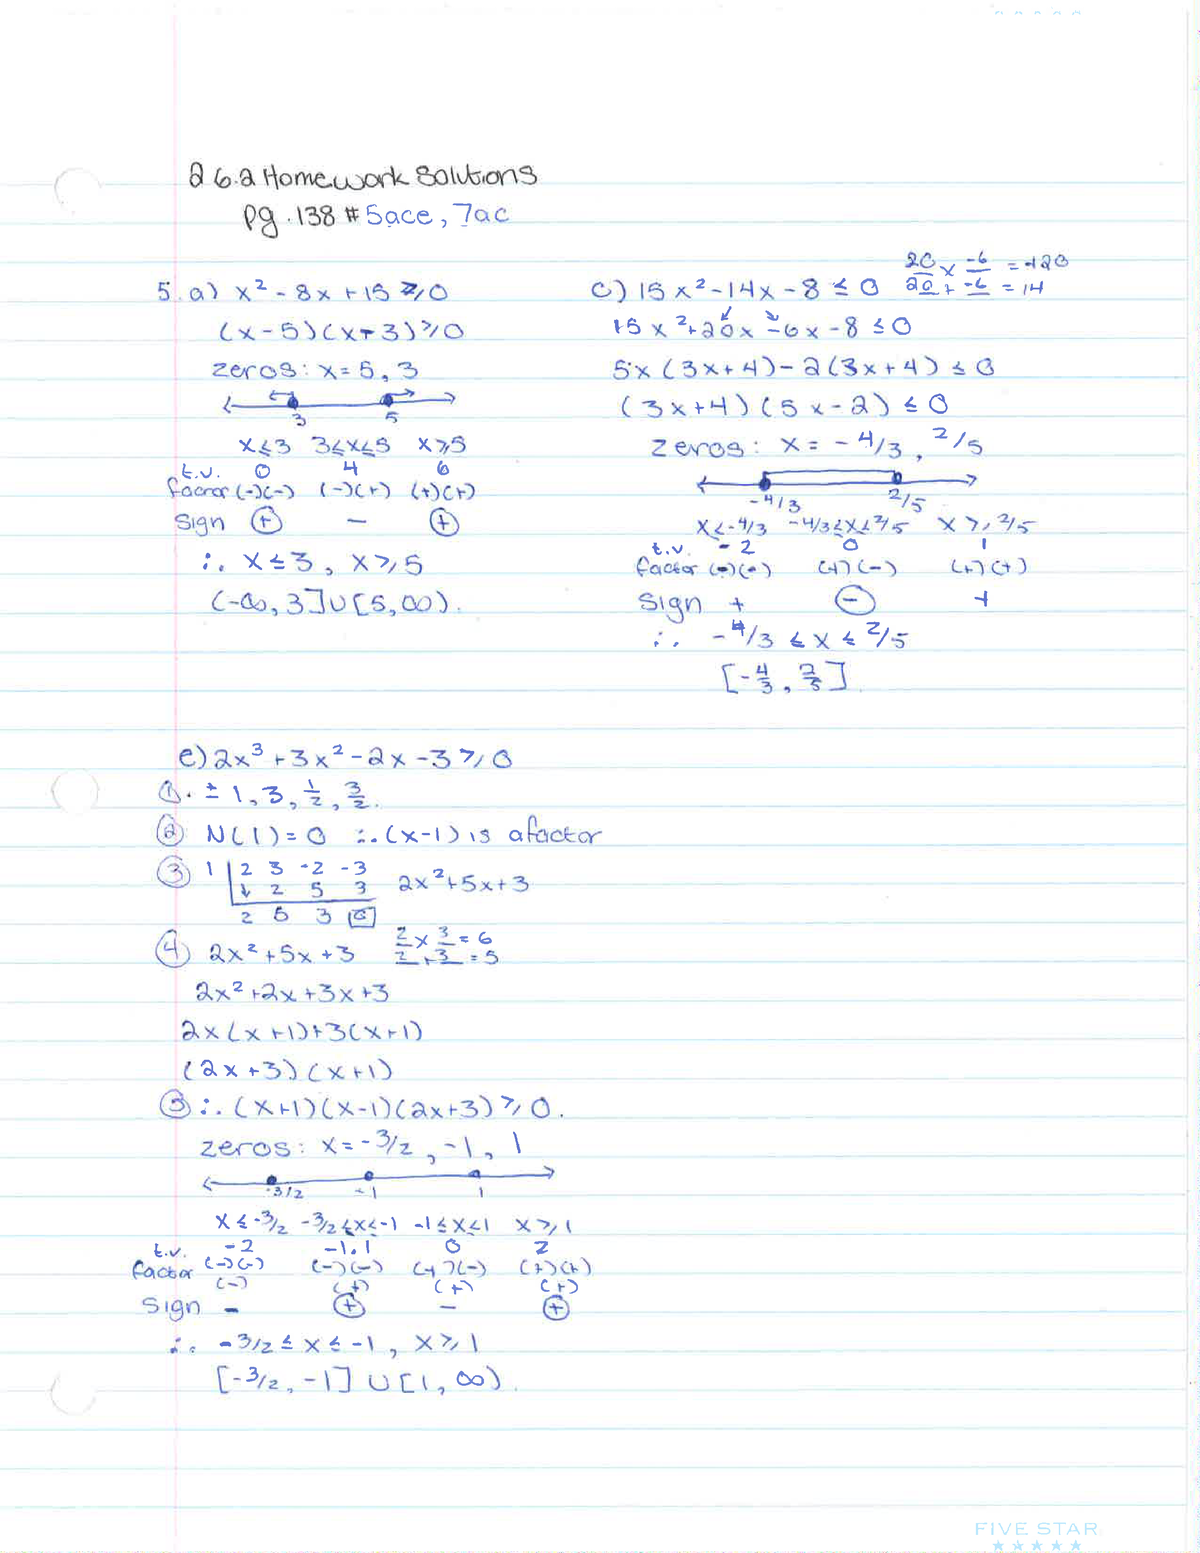 2 6.2 Homework Solutions
pg. 138 # 5ace, 7ac
5. a) x² - 8x + 15 ≥ 0
(x-5)(x-3) ≥ 0
zeros: x = 5, 3
3 5
x≤3 3≤x≤5 x≥5
t.v. 0 4 6
factor (-)(-) (-)(+) (+)(+)
Sign + - +
∴ x ≤ 3, x ≥ 5
(-∞, 3] ∪ [5, ∞).
c) 15x² - 14x - 8 ≤ 0
20 × -6 = -120
20 + -6 = 14
15x² + 20x - 6x - 8 ≤ 0
5x(3x+4) - 2(3x+4) ≤ 0
(3x+4)(5x-2) ≤ 0
zeros: x = -4/3, 2/5
-4/3 2/5
x≤-4/3 -4/3≤x≤2/5 x≥2/5
t.v. -2 0 1
factor (-)(-) (+)(-) (+)(+)
Sign + - +
∴ -4/3 ≤ x ≤ 2/5
[-4/3, 2/5].
e) 2x³ + 3x² - 2x - 3 ≥ 0
1. ± 1, 3, 1/2, 3/2.
2 N(1) = 0 ∴ (x-1) is a factor
3 1 | 2 3 -2 -3
↓ 2 5 3 2x²+5x+3
2 5 3 0
4 2x² + 5x + 3
2 × 3 = 6
2 + 3 = 5
2x² + 2x + 3x + 3
2x(x+1) + 3(x+1)
(2x+3)(x+1)
5 ∴ (x+1)(x-1)(2x+3) ≥ 0.
zeros: x = -3/2, -1, 1
-3/2 -1 1
x≤-3/2 -3/2≤x≤-1 -1≤x≤1 x≥1
t.v. -2 -1.1 0 2
factor (-)(-) (-)(-) (+)(-) (+)(+)
(-) (+) (+) (+)
Sign - + - +
∴ -3/2 ≤ x ≤ -1, x ≥ 1
[-3/2, -1] ∪ [1, ∞).
FIVE STAR
★★★★★